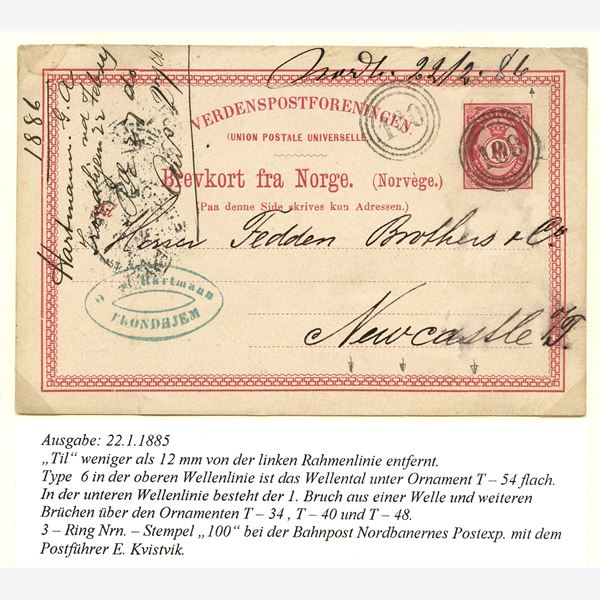 Nordb. 22/2. 86
VERDENSPOSTFORENINGEN
(UNION POSTALE UNIVERSELLE
Brevkort fra Norge. (Norvège.)
(Paa denne Side skrives kun Adressen.)
100
108
1886
Hartmann
Trondhjem 22 Febry
Herrer Fedden Brothers & Co
Newcastle o/T.
Hartmann
TRONDHJEM
Ausgabe: 22.1.1885
„Til“ weniger als 12 mm von der linken Rahmenlinie entfernt.
Type 6 in der oberen Wellenlinie ist das Wellental unter Ornament T – 54 flach.
In der unteren Wellenlinie besteht der 1. Bruch aus einer Welle und weiteren
Brüchen über den Ornamenten T – 34 , T – 40 und T – 48.
3 – Ring Nrn. – Stempel „100“ bei der Bahnpost Nordbanernes Postexp. mit dem
Postführer E. Kvistvik.